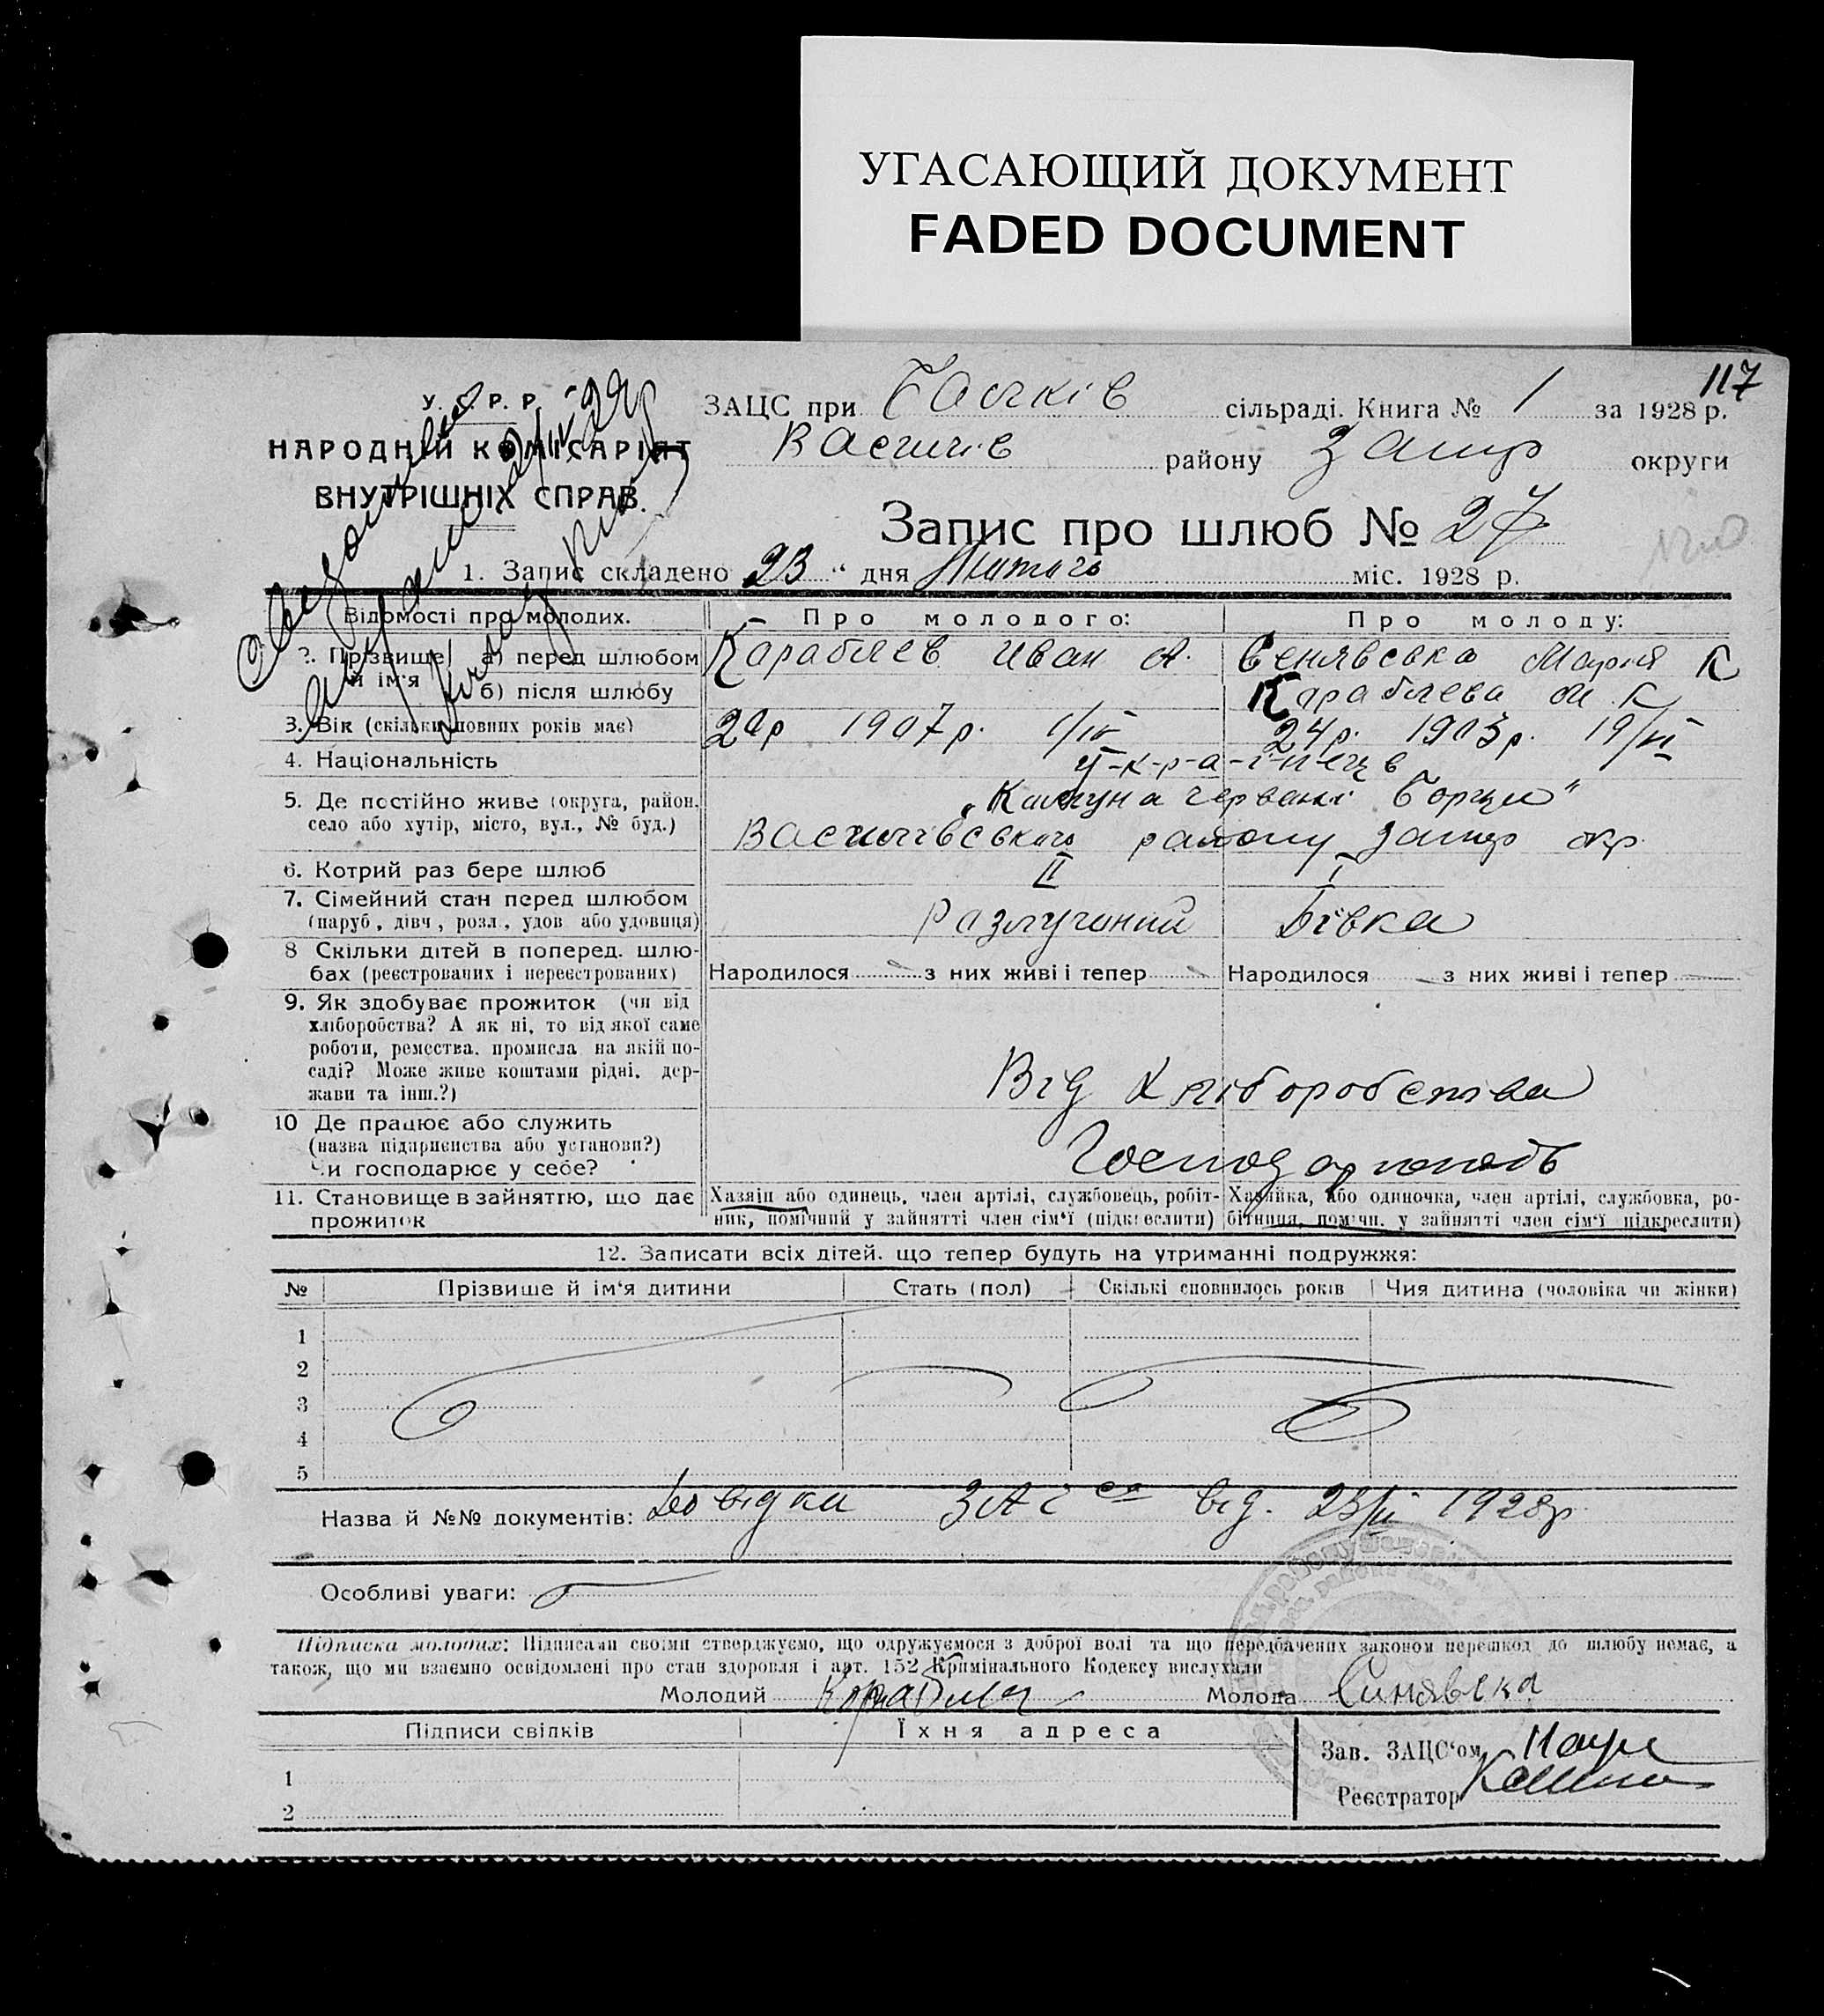 УГАСАЮЩИЙ ДОКУМЕНТ
FADED DOCUMENT
117
У. С. Р. Р.
НАРОДНІЙ КОМІСАРІЯТ
ВНУТРІШНІХ СПРАВ.
ЗАЦС при сільраді. Книга № 1 за 1928 р.
району Запор округи
Запис про шлюб № 27
1. Запис складено 23 “ дня Лютого міс. 1928 р.
Відомості про молодих.
Про молодого:
Про молоду:
2. Прізвище й ім'я а) перед шлюбом
Караблев Иван А.
Сенявсвка Мария К
б) після шлюбу
Караблева М К
3. Вік (скільки повних років має)
20р 1907 р. 1/IV
24р. 1903р. 19/VI
4. Національність
У-к-р-а-ї-н-ец в
5. Де постійно живе (округа, район, село або хутір, місто, вул., № буд.)
„Камуна червані борци“
району Запор окр.
6. Котрий раз бере шлюб
II
I
7. Сімейний стан перед шлюбом
(паруб, дівч, розл, удов або удовиця)
Разлучоний
Дівка
8 Скільки дітей в поперед. шлю-
бах (реєстрованих і нереєстрованих)
Народилося з них живі і тепер
Народилося з них живі і тепер
9. Як здобуває прожиток (чи від
хліборобства? А як ні, то від якої саме
роботи, ремества, промисла на якій по-
саді? Може живе коштами рідні, дер-
жави та інш.?)
Від Хліборобства
10 Де працює або служить
(назва підприємства або установи?)
Чи господарює у себе?
11. Становище в зайняттю, що дає
прожиток
Хазяїн або одинець, член артілі, службовець, робіт-
ник, помічний у зайнятті член сім'ї (підкреслити)
Хазяйка, або одиночка, член артілі, службовка, ро-
бітниця, помічн. у зайнятті член сім'ї підкреслити)
12. Записати всіх дітей, що тепер будуть на утриманні подружжя:
№ Прізвише й ім'я дитини Стать (пол) Скількі сповнилось років Чия дитина (чоловіка чи жінки)
1
2
3
4
5
Назва й №№ документів: Довідка ЗАГса від. 23/II 1928р.
Особливі уваги:
Підписка молодих: Підписами своїми стверджуємо, що одружуємося з доброї волі та що передбачених законом перешкод до шлюбу немає, а
також, що ми взаємно освідомлені про стан здоровля і арт. 152 Кримінального Кодексу вислухали
Молодий
Молода Синявска
Підписи свідків
Їхня адреса
1
2
Зав. ЗАЦС'ом
Реєстратор